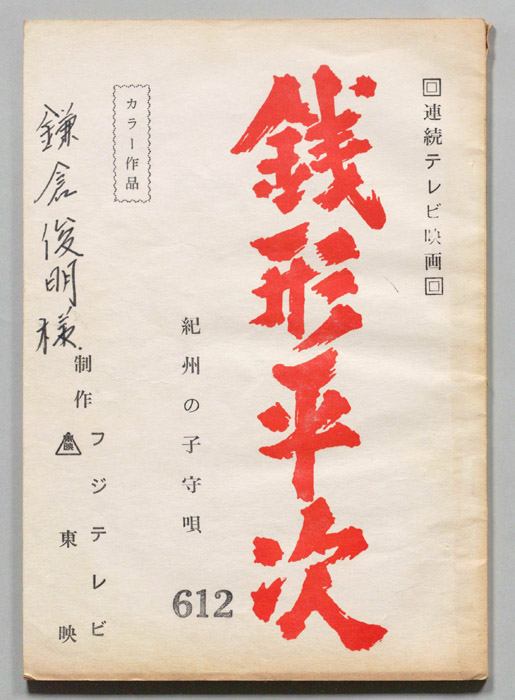 回連続テレビ映画回
銭形平次
紀州の子守唄
612
カラー作品
制作
フジテレビ
東映
東映
鎌倉俊明様